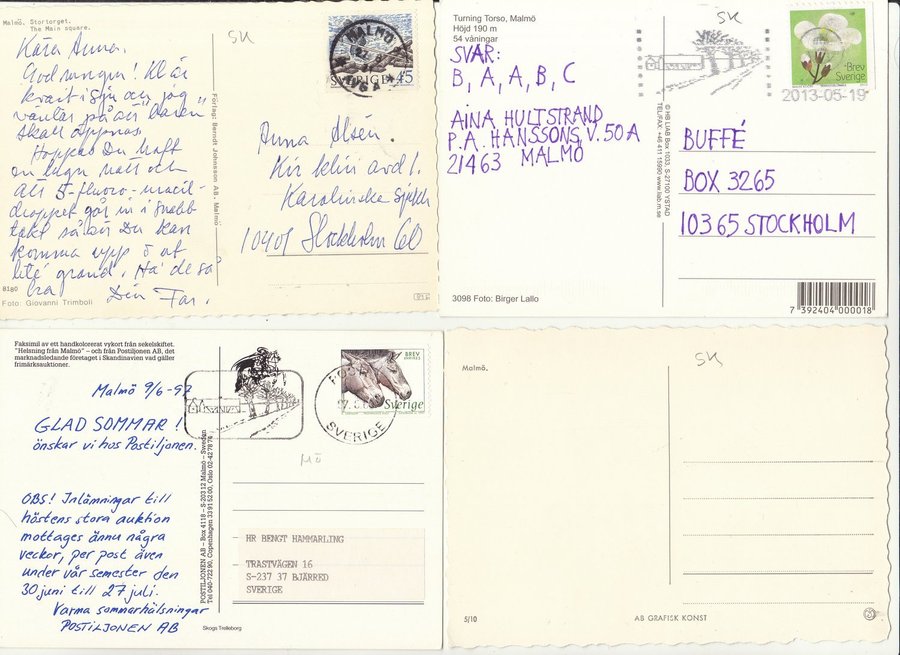 Malmö. Stortorget.
The Main square.
SK
Kära Anna.
God morgon! Kl är
kvart i sju och jag
väntar på att "baren"
skall öppnas.
Hoppas Du haft
en lugn natt och
att 5-fluoro-uracil-
droppet går in i snabb
takt så att Du kan
komma upp o at
lite grand. Ha' de så
bra
Din Far.
8180
Foto: Giovanni Trimboli
Förlag: Berndt Johnsson AB, Malmö
MALMÖ
SVERIGE 45
Anna Olsén.
Kir klin avd 1.
Karolinska Sjukh
10401 Stockholm 60
Turning Torso, Malmö
Höjd 190 m
54 våningar
SK
SVAR:
B, A, A, B, C
AINA HULTSTRAND
P.A. HANSSONS V. 50A
21463 MALMÖ
© HB LIAB Box 1033, S-27100 YSTAD
TEL/FAX +46 411 15990 www.liab.m.se
Brev
Sverige
2013-05-19
BUFFÉ
BOX 3265
10365 STOCKHOLM
3098 Foto: Birger Lallo
7 392404 000018
Faksimil av ett handkolorerat vykort från sekelskiftet.
"Helsning från Malmö" – och från Postiljonen AB, det
marknadsledande företaget i Skandinavien vad gäller
frimärksauktioner.
Malmö 9/6-97
GLAD SOMMAR!
önskar vi hos Postiljonen.
OBS! Inlämningar till
höstens stora auktion
mottages ännu några
veckor, per post även
under vår semester den
30 juni till 27 juli.
Varma sommarhälsningar
POSTILJONEN AB
POSTILJONEN AB – Box 4118 – S-203 12 Malmö – Sweden
Tel 040-722 90, Copenhagen 33 91 52 00, Oslo 02-42 78 74
BREV
Sverige
SVERIGE
MÖ
HR BENGT HAMMARLING
TRASTVÄGEN 16
S-237 37 BJÄRRED
SVERIGE
Skogs Trelleborg
Malmö.
SK
5/10
AB GRAFISK KONST